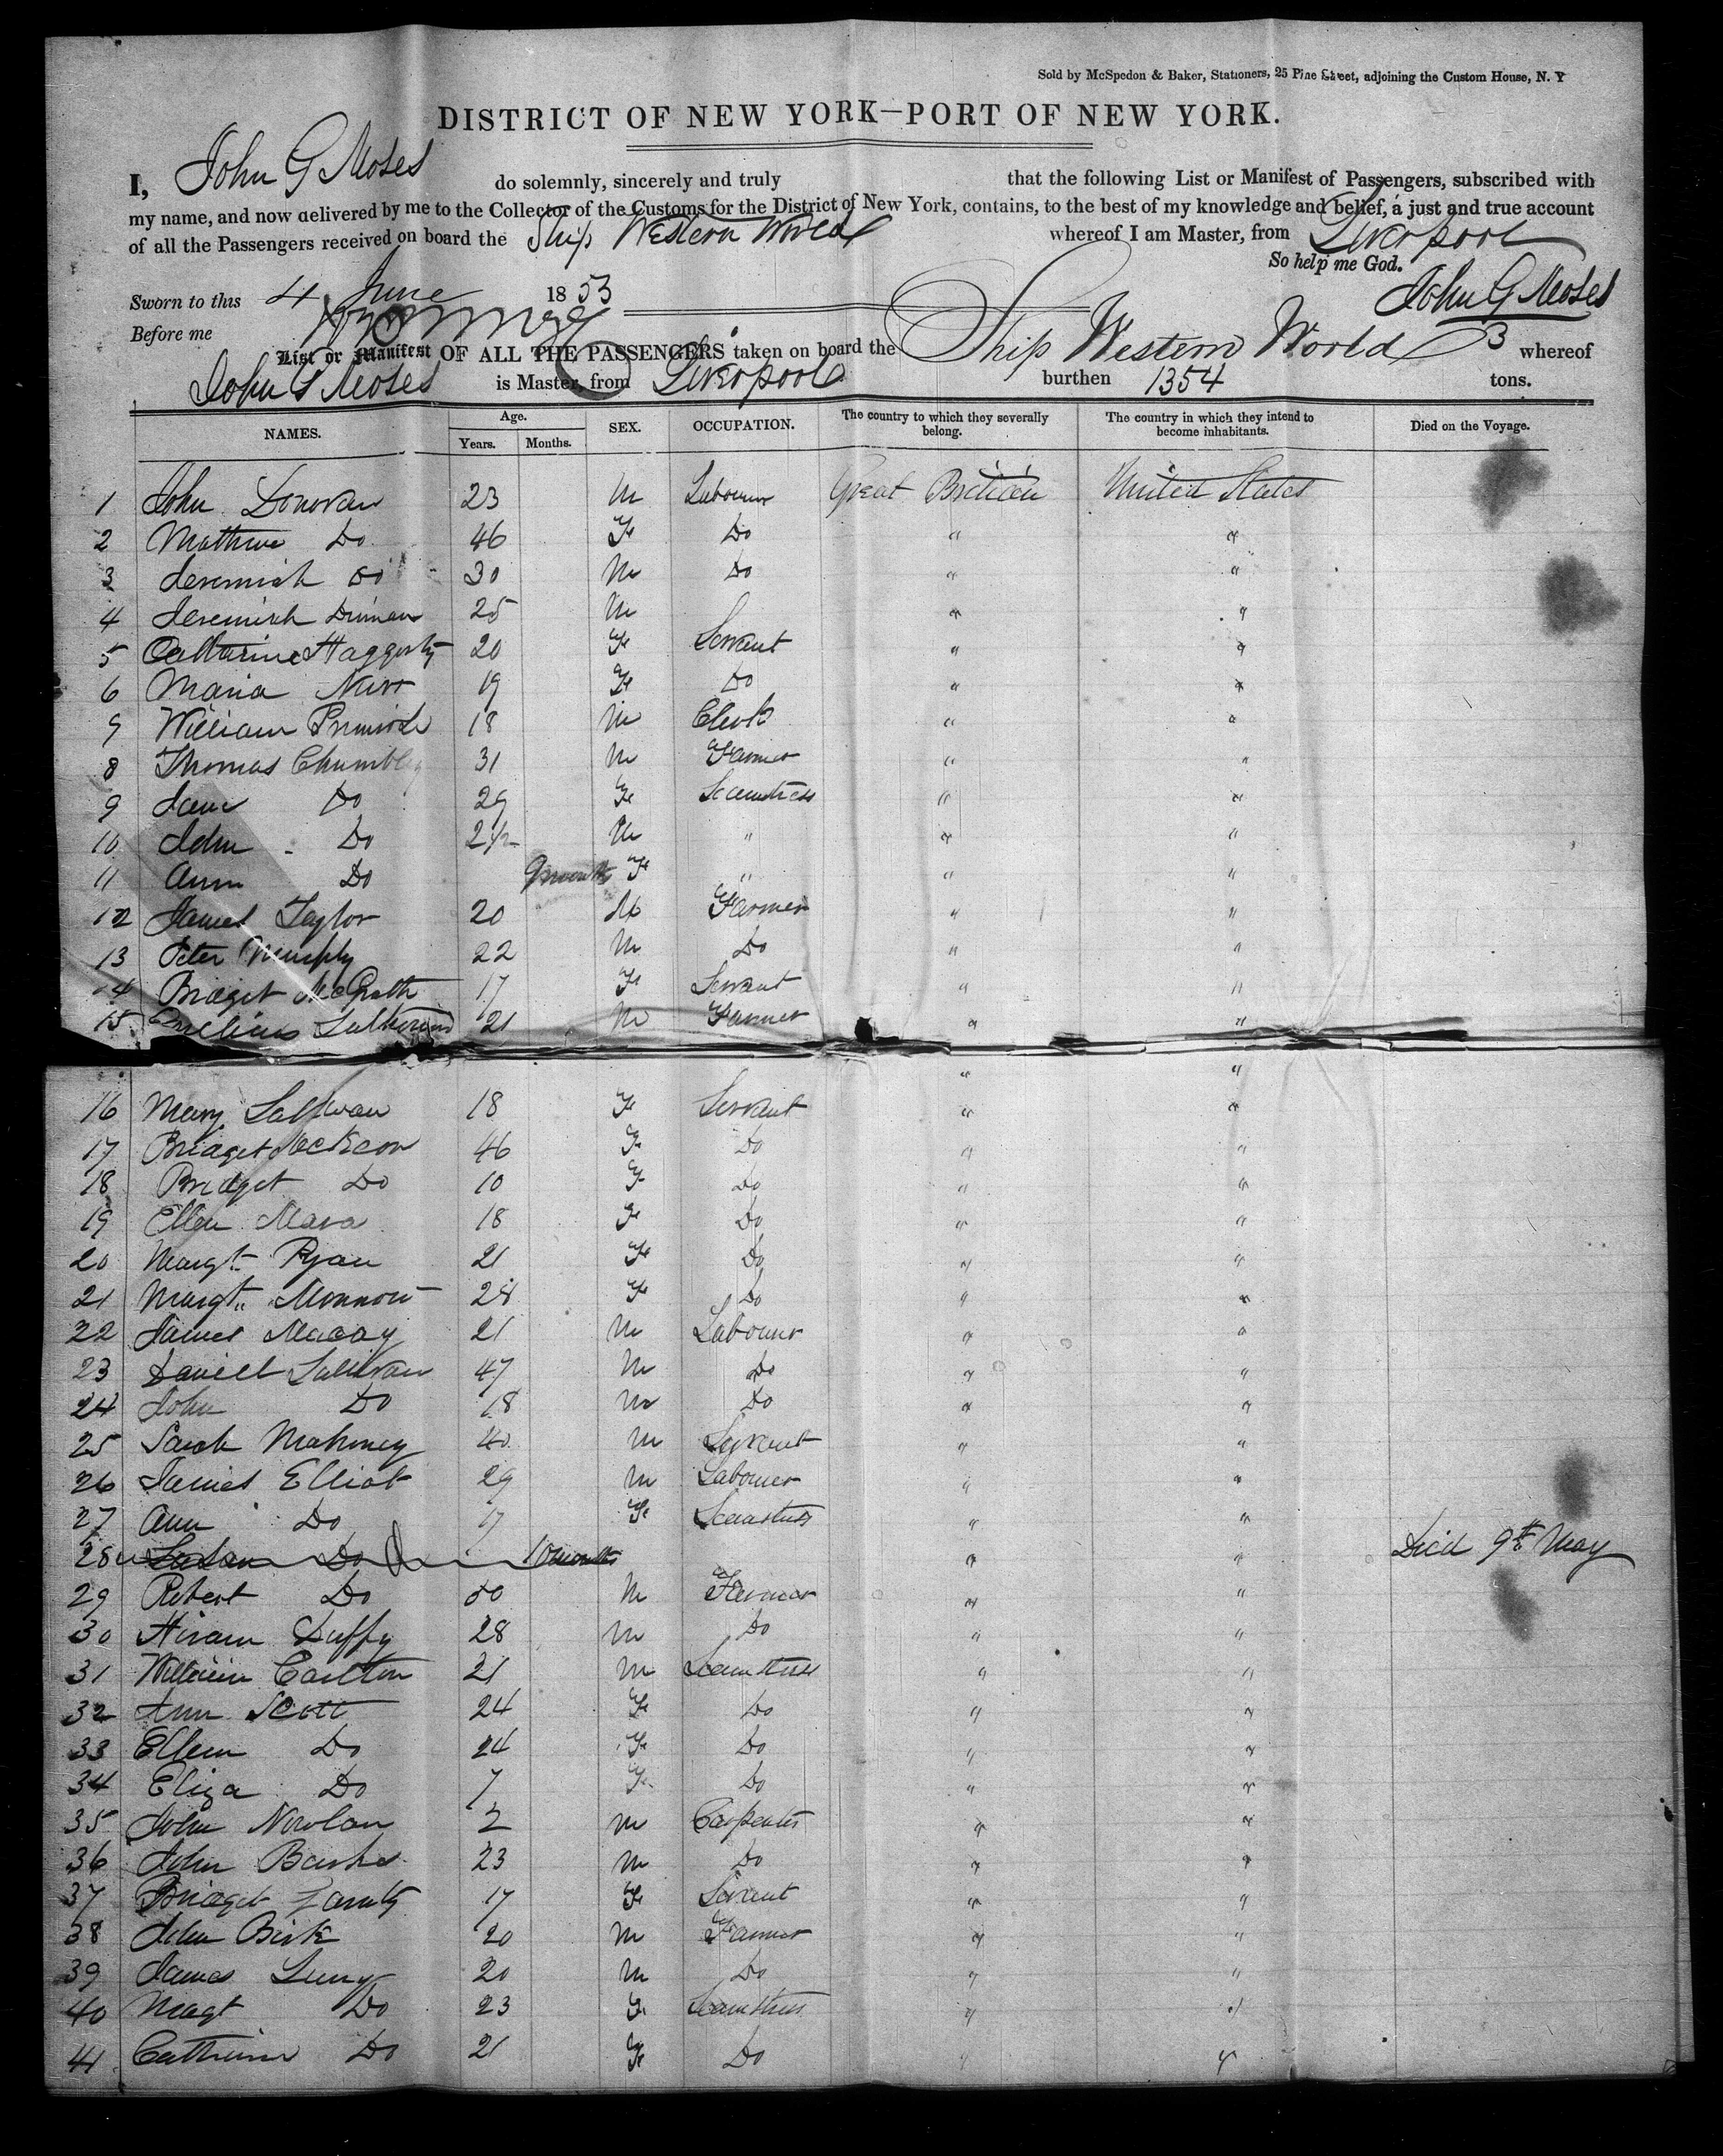 Sold by McSpedon & Baker, Stationers, 25 Pine Street, adjoining the Custom House, N. Y
DISTRICT OF NEW YORK—PORT OF NEW YORK.
I, John G Moses do solemnly, sincerely and truly that the following List or Manifest of Passengers, subscribed with
my name, and now delivered by me to the Collector of the Customs for the District of New York, contains, to the best of my knowledge and belief, a just and true account
of all the Passengers received on board the Ship Western World whereof I am Master, from Liverpool
So help me God.
Sworn to this 4 June 1853 John G Moses
Before me
List or Manifest OF ALL THE PASSENGERS taken on board the Ship Western World whereof
John G Moses is Master, from Liverpool burthen 1354 tons.
NAMES. Age. Years. Months. SEX. OCCUPATION. The country to which they severally belong. The country in which they intend to become inhabitants. Died on the Voyage.
1 John Donovan 23 M Labourer Great Britain United States
2 Mathew Do 46 F Do " "
3 Jeremiah Do 30 M Do " "
4 Jeremiah 25 M " "
5 Catharine Haggerty 20 F Servant " "
6 Maria 19 F Do " "
9 William Primrose 18 M Clerk " "
8 Thomas Chumbley 31 M Farmer " "
9 Jane Do 29 F Seamstress " "
10 John Do 2 1/2 M " " "
11 Ann Do 9 months F " " "
12 James Taylor 20 M Farmer " "
13 Peter Murphy 22 M Do " "
14 Bridget McGrath 17 F Servant " "
15 Cornelius 21 M Farmer " "
" "
16 Mary Sullivan 18 F Servant " "
17 Bridget McKeon 46 F Do " "
18 Bridget Do 10 F Do " "
19 Ellen Mara 18 F Do " "
20 Margt Ryan 21 F Do " "
21 Margt 28 F Do " "
22 James Macay 21 M Labourer " "
23 Daniell Sullivan 47 M Do " "
24 John Do 18 M Do " "
25 Sarah Mahoney 40 M Servant " "
26 James Elliot 29 M Labourer " "
27 Ann Do 17 F Seamstress " "
28 Susan Do 10 months " " Died 9th May
29 Robert Do 50 M Farmer " "
30 Hiram Duffy 28 M Do " "
31 William Carlton 21 M Seamstress " "
32 Ann Scott 24 F Do " "
33 Ellen Do 24 F Do " "
34 Eliza Do 7 F Do " "
35 John Nowlan 2 M Carpenter " "
36 John 23 M Do " "
37 Bridget 17 F Servant " "
38 John Birk 20 M Farmer " "
39 James 20 M Do " "
40 Magt Do 23 F Seamstress " "
41 Catherine Do 21 F Do " "